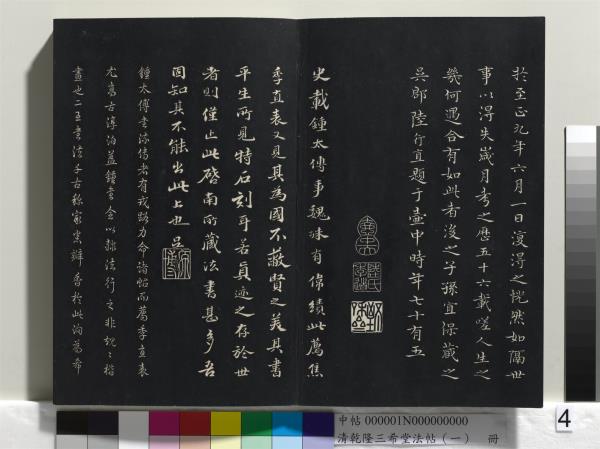 於至正九年六月一日復得之恍然如隔世
事以得失歲月考之歷五十六載嗟人生之
幾何遇合有如此者後之子孫宜保藏之
吳郡陸行直題于壺中時年七十有五
史載鍾太傅事魏殊有偉績此薦焦
季直表又見其為國不蔽賢之美其書
平生所見特石刻耳若真迹之存於世
者則僅止此啓南所藏法書甚多吾
固知其不能出此上也吳
原博
鍾太傅書流傳者有戎路力命諸帖而薦季直表
尤為古淳泊蓋鍾書全以隸法行之非規規楷
畫也二王書法千古稱家
於此洵為希
4
中帖 000001N000000000
清乾隆三希堂法帖(一) 冊